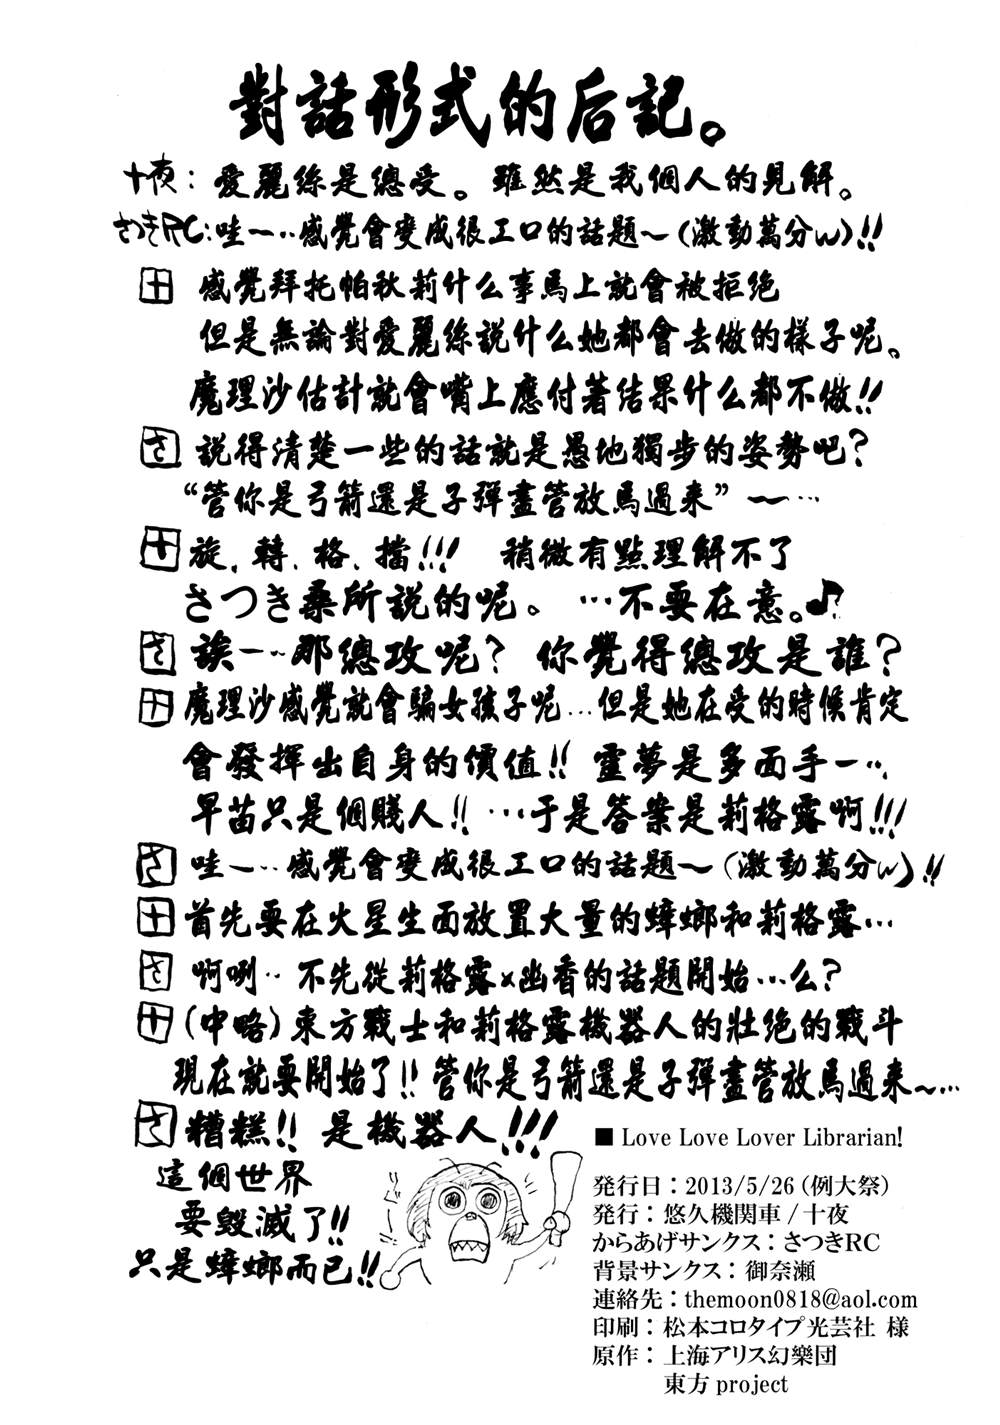 對話形式的后記。
十夜：愛麗絲是總受。雖然是我個人的見解。
さつきRC：哇一‥感覺會變成很工口的話題～（激動萬分w）!!
十 感覺拜托帕秋莉什么事馬上就會被拒絶
但是無論對愛麗絲說什么她都會去做的樣子呢。
魔理沙估計就會嘴上應付著结果什么都不做!!
さ 說得清楚一些的話就是愚地獨步的姿勢吧？
“管你是弓箭還是子彈盡管放馬過来”～…
十 旋、轉、格、擋!!! 稍微有點理解不了
さつき桑所説的呢。…不要在意。♪
さ 誒一‥那總攻呢？你覺得總攻是誰？
十 魔理沙感覺就會騙女孩子呢…但是她在受的時候肯定
會發揮出自身的價值!! 靈夢是多面手一‥
早苗只是個賤人!! …于是答案是莉格露啊!!!
さ 哇一‥感覺會變成很工口的話題～（激動萬分w）!!
十 首先要在火星生面放置大量的蟑螂和莉格露…
さ 啊咧‥不先從莉格露×幽香的話題開始…么？
十（中略）東方戰士和莉格露機器人的壯绝的戰斗
現在就要開始了!! 管你是弓箭還是子彈盡管放馬過来～…
さ 糟糕!! 是機器人!!!
這個世界
要毀滅了!!
只是蟑螂而已!!
■ Love Love Lover Librarian!
発行日：2013/5/26（例大祭）
発行：悠久機関車 / 十夜
からあげサンクス：さつきRC
背景サンクス：御奈瀬
連絡先：themoon0818@aol.com
印刷：松本コロタイプ光芸社 様
原作：上海アリス幻樂団
東方 project